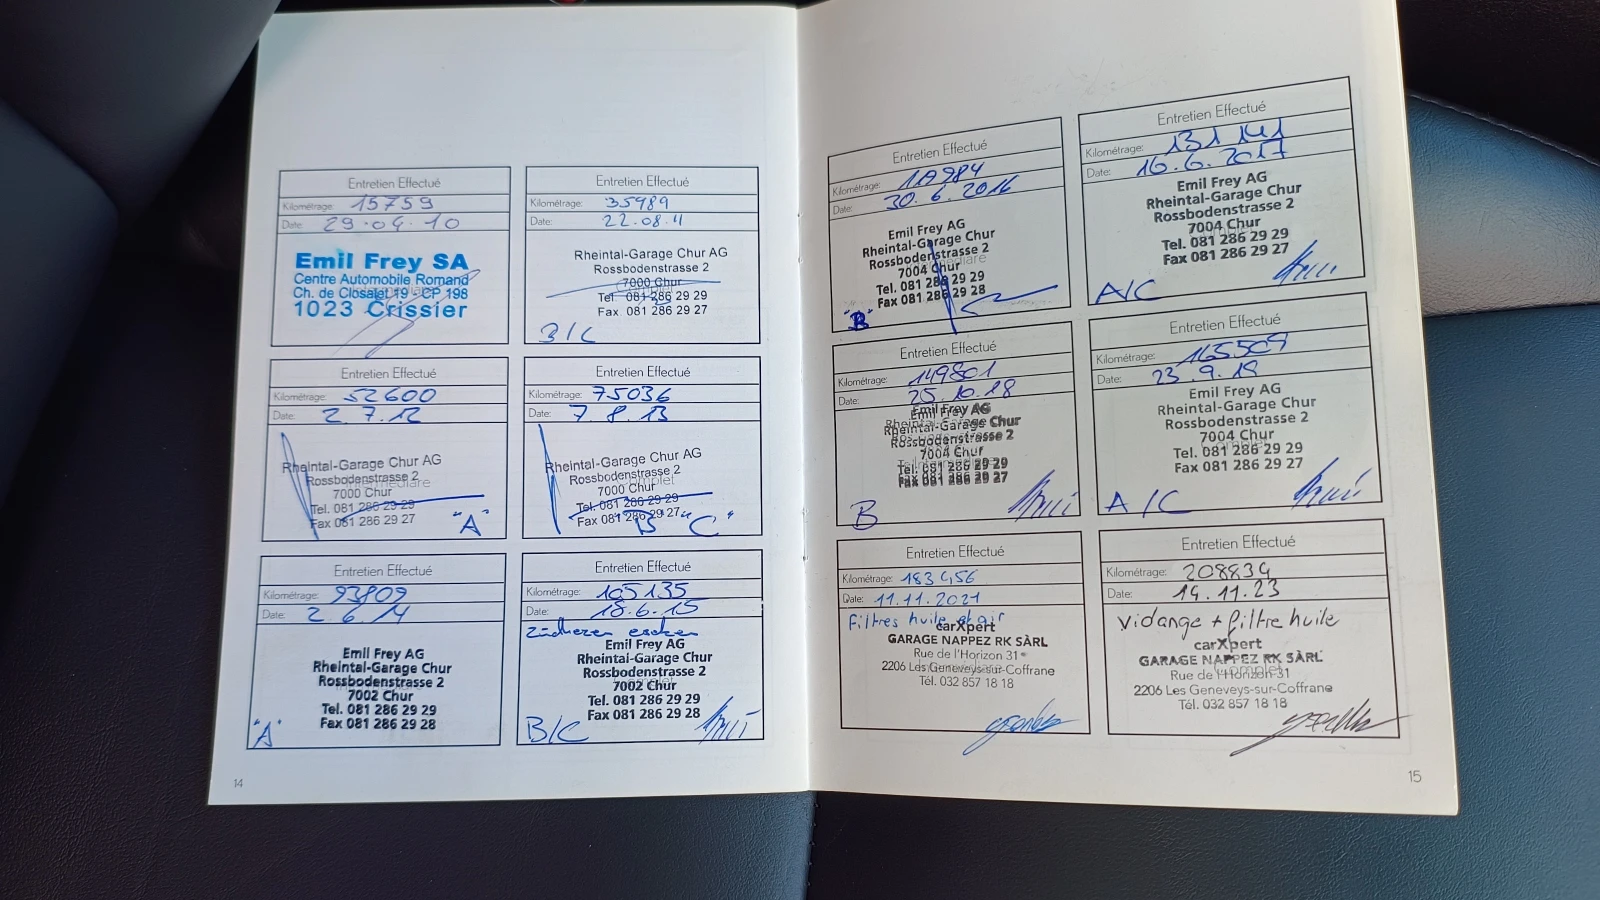 Entretien Effectué
Kilométrage: 15759
Date: 29.04.10
Emil Frey SA
Centre Automobile Romand
Ch. de Closalet 19 - CP 198
1023 Crissier
Entretien Effectué
Kilométrage: 35989
Date: 22.08.11
Rheintal-Garage Chur AG
Rossbodenstrasse 2
7000 Chur
Tel. 081 286 29 29
Fax 081 286 29 27
B/C
Entretien Effectué
Kilométrage: 52600
Date: 2.7.12
Rheintal-Garage Chur AG
Rossbodenstrasse 2
7000 Chur
Tel. 081 286 29 29
Fax 081 286 29 27
"A"
Entretien Effectué
Kilométrage: 75036
Date: 7.8.13
Rheintal-Garage Chur AG
Rossbodenstrasse 2
7000 Chur
Tel. 081 286 29 29
Fax 081 286 29 27
"C"
Entretien Effectué
Kilométrage: 93809
Date: 2.6.14
Emil Frey AG
Rheintal-Garage Chur
Rossbodenstrasse 2
7002 Chur
Tel. 081 286 29 29
Fax 081 286 29 28
"A"
Entretien Effectué
Kilométrage: 105135
Date: 18.6.15
Emil Frey AG
Rheintal-Garage Chur
Rossbodenstrasse 2
7002 Chur
Tel. 081 286 29 29
Fax 081 286 29 28
B/C
14
Entretien Effectué
Kilométrage:
Date: 30.6.2016
Emil Frey AG
Rheintal-Garage Chur
Rossbodenstrasse 2
7004 Chur
Tel. 081 286 29 29
Fax 081 286 29 28
"B"
Entretien Effectué
Kilométrage: 131141
Date: 16.6.2017
Emil Frey AG
Rheintal-Garage Chur
Rossbodenstrasse 2
7004 Chur
Tel. 081 286 29 29
Fax 081 286 29 27
A/C
Entretien Effectué
Kilométrage: 149801
Date: 25.10.18
Emil Frey AG
Rheintal-Garage Chur
Rossbodenstrasse 2
7004 Chur
Tel. 081 286 29 29
Fax 081 286 29 27
B
Entretien Effectué
Kilométrage: 165509
Date: 23.9.19
Emil Frey AG
Rheintal-Garage Chur
Rossbodenstrasse 2
7004 Chur
Tel. 081 286 29 29
Fax 081 286 29 27
A/C
Entretien Effectué
Kilométrage: 183456
Date: 11.11.2021
Filtres huile et air
carXpert
GARAGE NAPPEZ RK SÀRL
Rue de l'Horizon 31
2206 Les Geneveys-sur-Coffrane
Tél. 032 857 18 18
Entretien Effectué
Kilométrage: 208834
Date: 14.11.23
vidange + filtre huile
carXpert
GARAGE NAPPEZ RK SÀRL
Rue de l'Horizon 31
2206 Les Geneveys-sur-Coffrane
Tél. 032 857 18 18
15